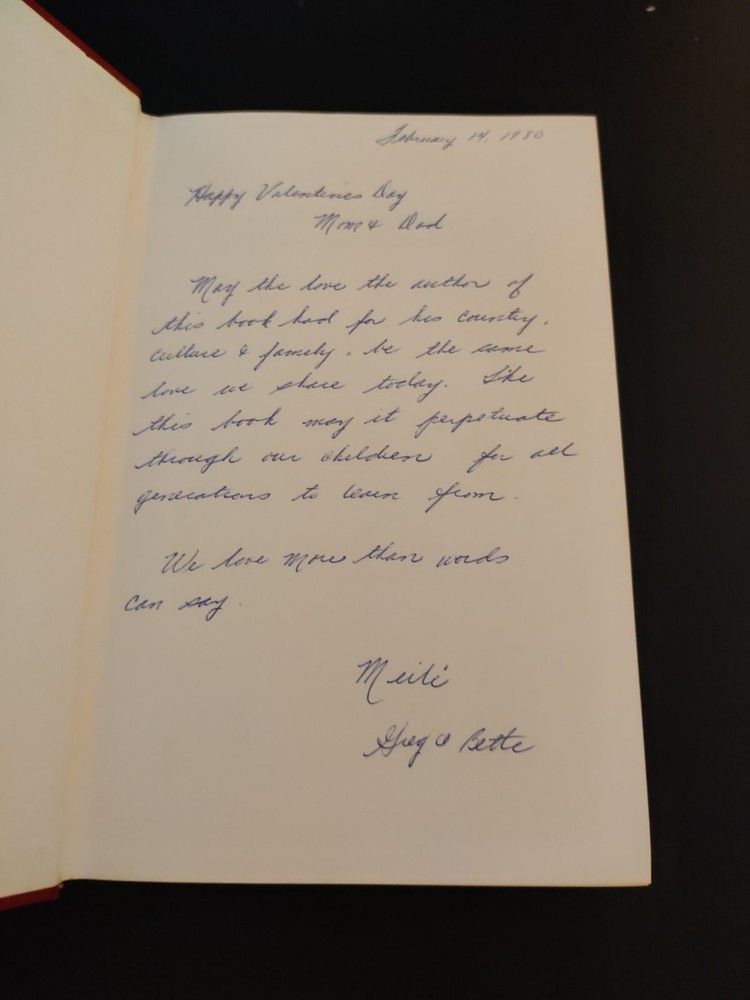 February 14, 1980
Happy Valentines Day
Mom & Dad
May the love the author of
this book had for his country,
culture & family, be the same
love we share today. Like
this book may it perpetuate
through our children for all
generations to learn from.
We love more than words
can say.
Meili
Greg & Bette